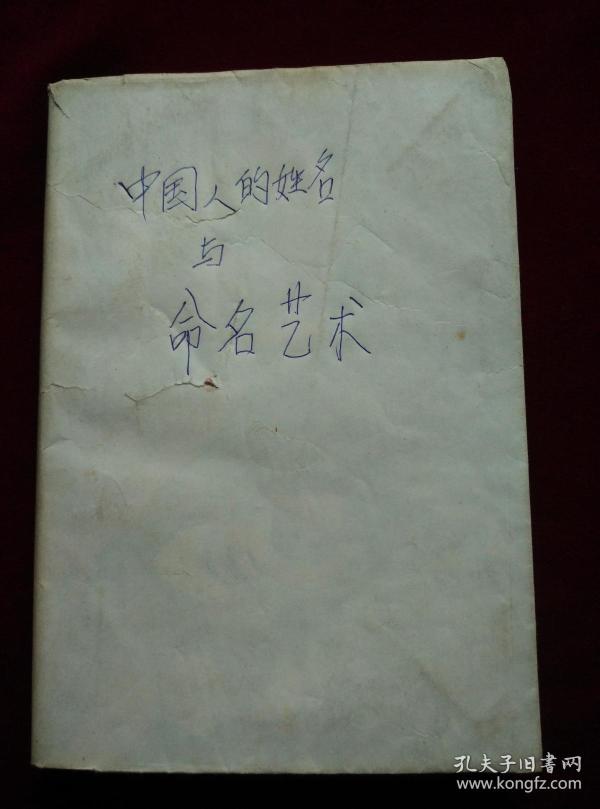 中国人的姓名
与
命名艺术
孔夫子旧書网
www.kongfz.com